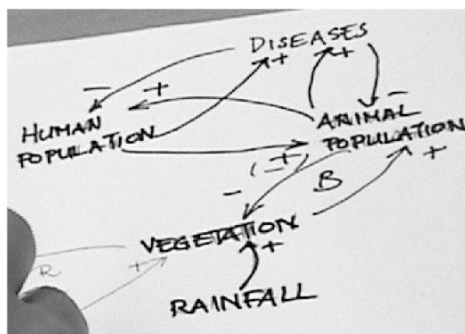 DISEASES
- + + -
+
HUMAN
POPULATION
ANIMAL
POPULATION
+
(-)
+
- B
VEGETATION
+
R +
RAINFALL